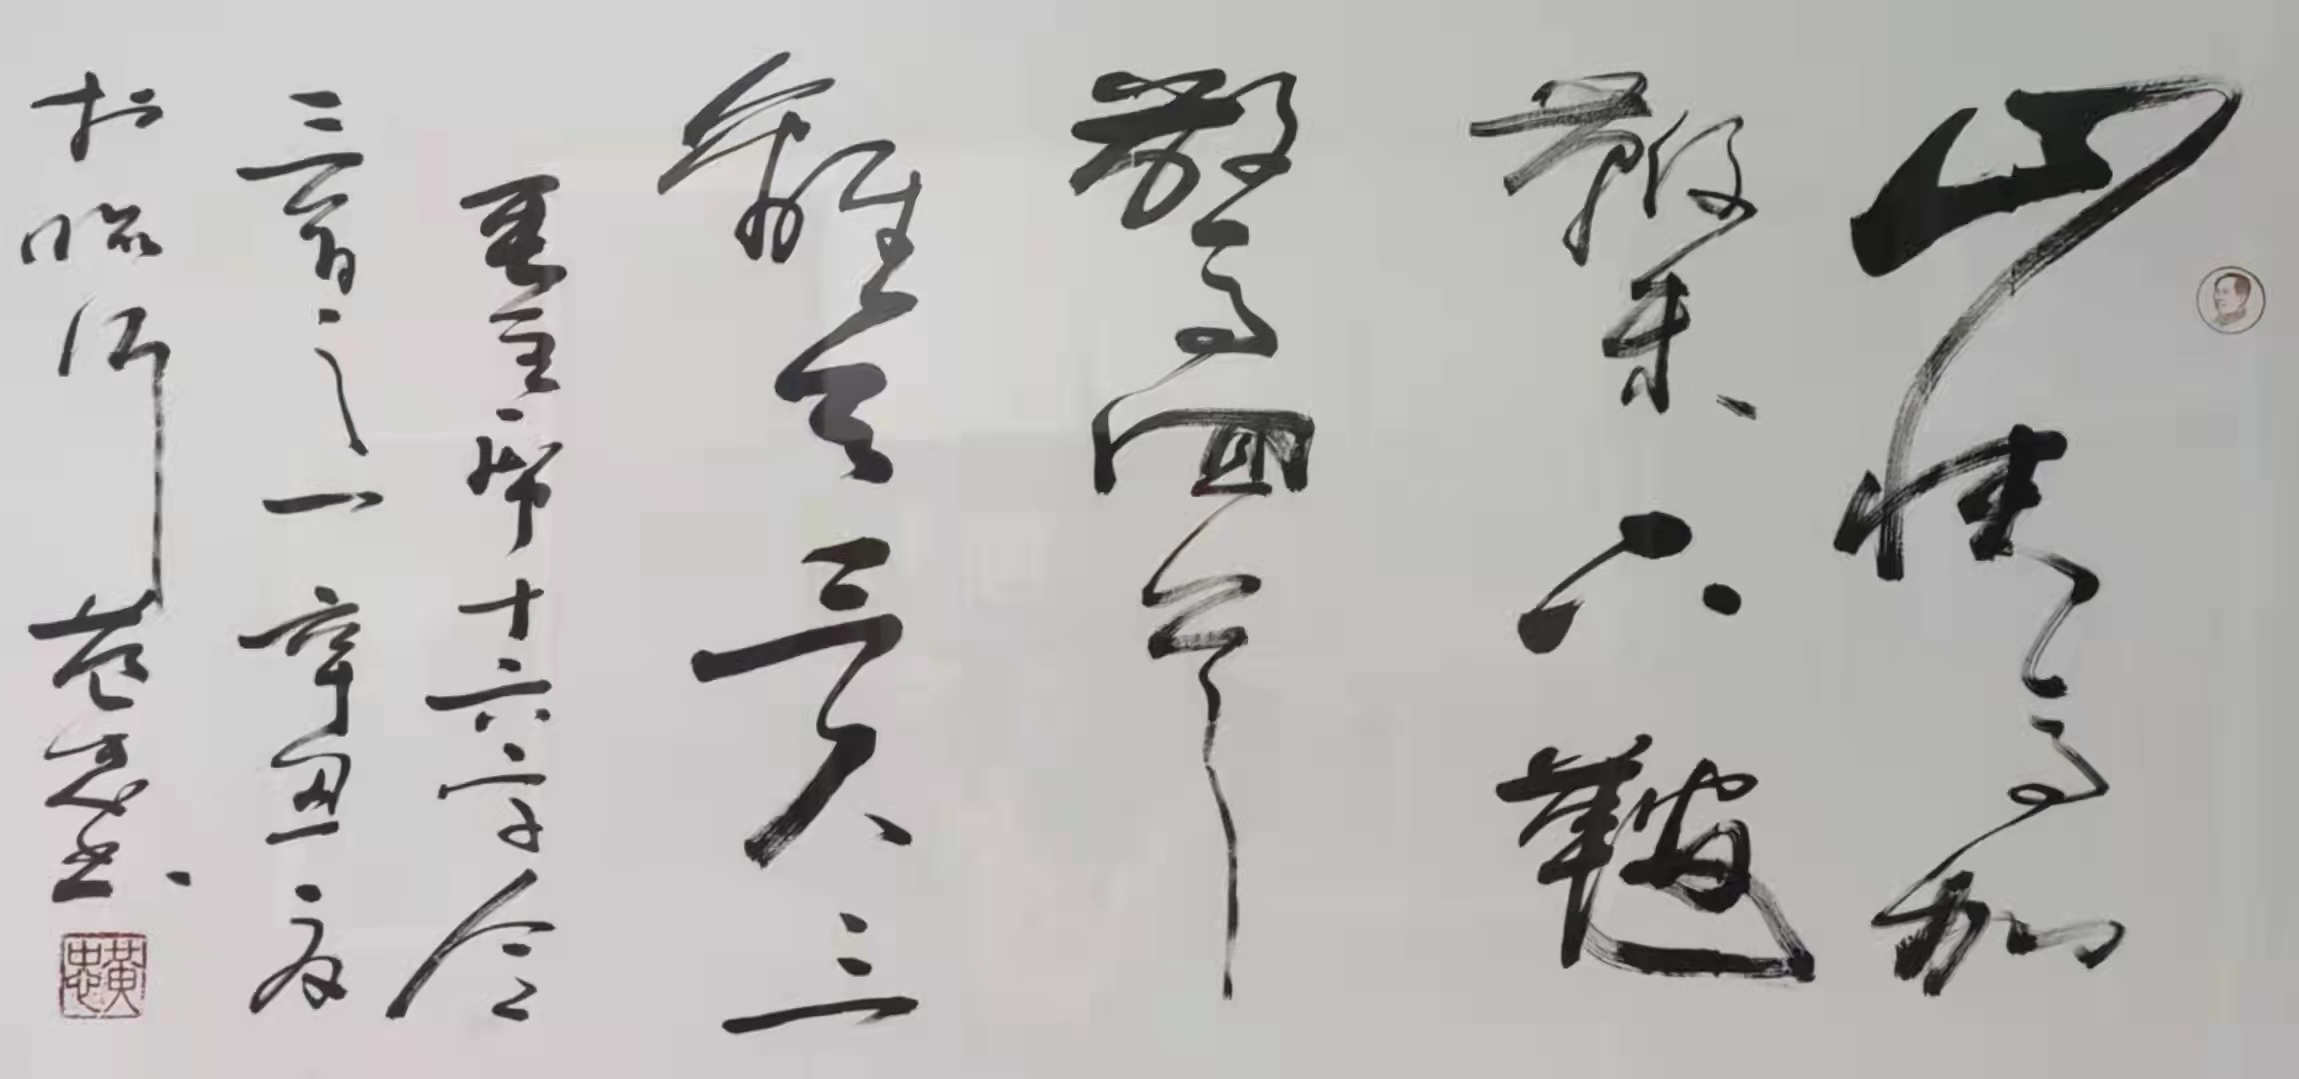 山快馬加
鞭未下鞍
驚回首
離天三尺三
毛主席十六字令
三首之一辛丑夏
於臨沂黄忠书
黄忠